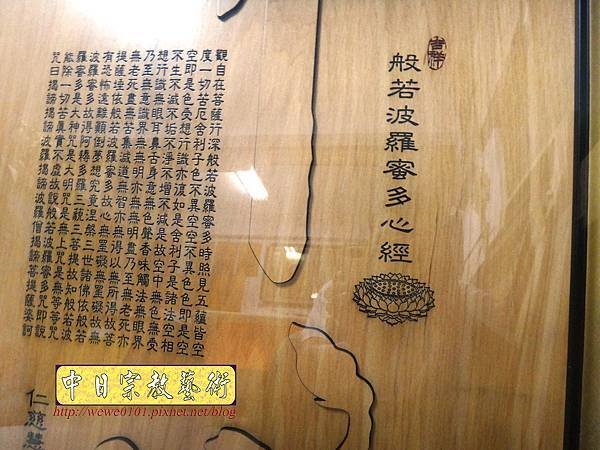 吉祥
般若波羅蜜多心經
觀自在菩薩行深般若波羅蜜多時照見五蘊皆空
度一切苦厄舍利子色不異空空不異色色即是空
空即是色受想行識亦復如是舍利子是諸法空相
不生不滅不垢不淨不增不減是故空中無色無受
想行識無眼耳鼻舌身意無色聲香味觸法無眼界
乃至無意識界無無明亦無無明盡乃至無老死亦
無老死盡無苦集滅道無智亦無得以無所得故菩
提薩埵依般若波羅蜜多故心無罣礙無罣礙故無
有恐怖遠離顛倒夢想究竟涅槃三世諸佛依般若
波羅蜜多故得阿耨多羅三藐三菩提故知般若波
羅蜜多是大神咒是大明咒是無上咒是無等等咒
能除一切苦真實不虛故說般若波羅蜜多咒即說
咒曰揭諦揭諦波羅揭諦波羅僧揭諦菩提薩婆訶
仁隨
中日宗教藝術
http://wewe0101.pixnet.net/blog